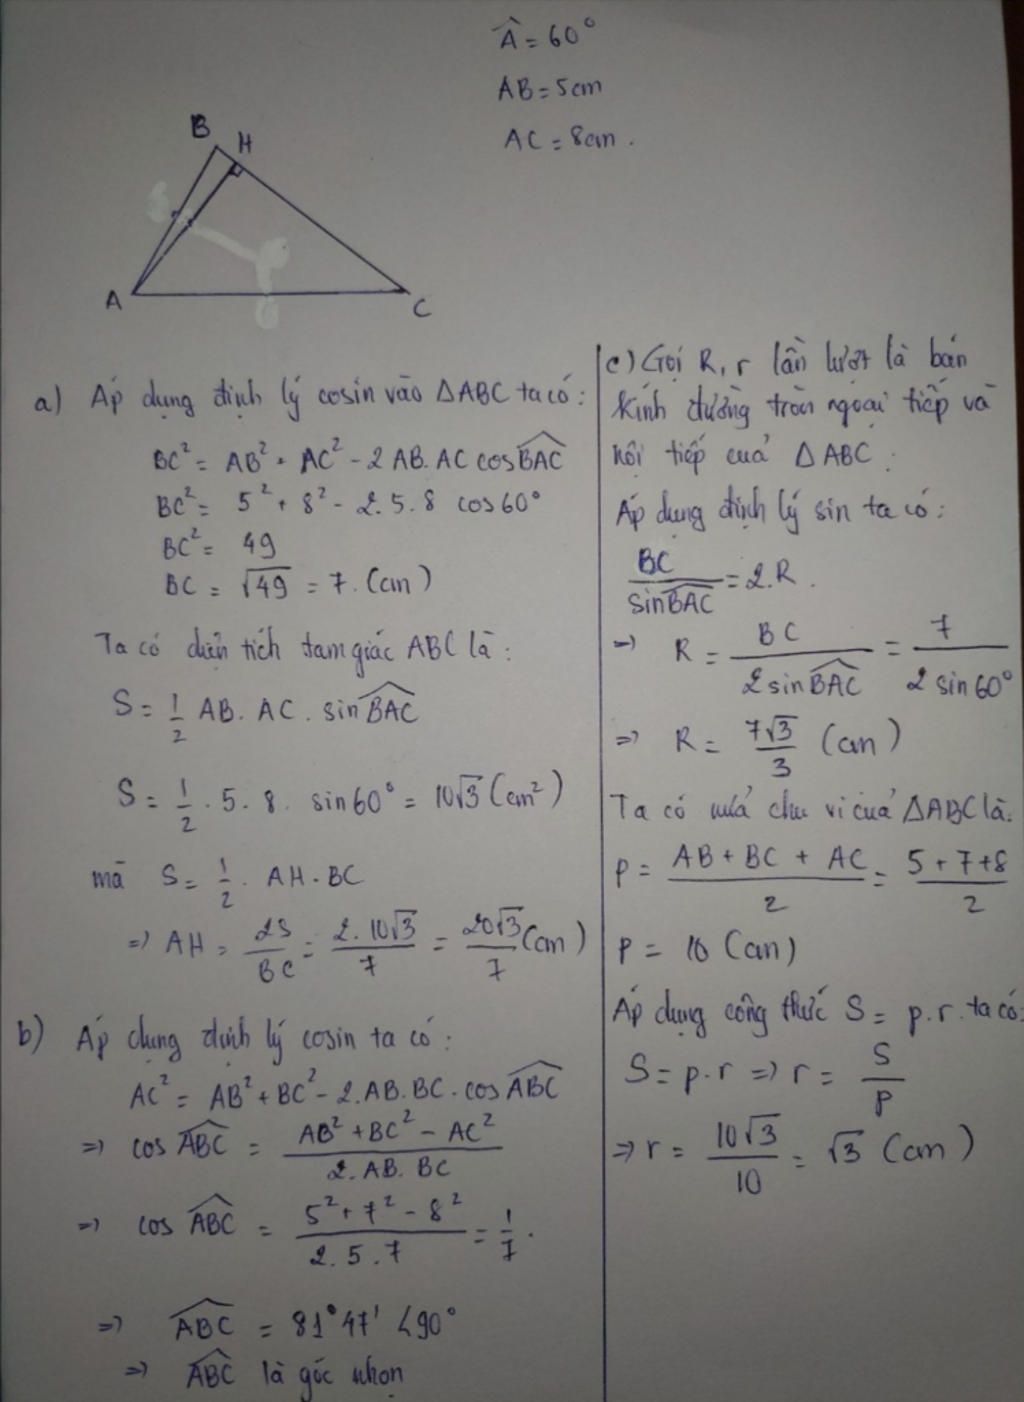 Â = 60°
AB = 5cm
AC = 8cm.
B
H
A
C
a) Áp dụng định lý cosin vào ΔABC ta có:
BC² = AB² + AC² - 2 AB. AC cos \widehat{BAC}
BC² = 5² + 8² - 2.5.8 cos60°
BC² = 49
BC = √49 = 7. (cm)
Ta có diện tích tam giác ABC là:
S = 1/2 AB. AC. sin \widehat{BAC}
S = 1/2 . 5. 8. sin60° = 10√3 (cm²)
mà S = 1/2 . AH. BC
=> AH = 2S/BC = 2.10√3/7 = 20√3/7 (cm)
b) Áp dụng định lý cosin ta có:
AC² = AB² + BC² - 2.AB.BC. cos \widehat{ABC}
=> cos \widehat{ABC} = (AB² + BC² - AC²)/(2.AB.BC)
=> cos \widehat{ABC} = (5² + 7² - 8²)/(2.5.7) = 1/7.
=> \widehat{ABC} = 81°47' < 90°
=> \widehat{ABC} là góc nhọn
c) Gọi R, r lần lượt là bán
kính đường tròn ngoại tiếp và
nội tiếp cuả ΔABC.
Áp dụng định lý sin ta có:
BC/sin \widehat{BAC} = 2.R.
=> R = BC/(2 sin \widehat{BAC}) = 7/(2 sin60°)
=> R = 7√3/3 (cm)
Ta có nửa chu vi cuả ΔABC là:
p = (AB + BC + AC)/2 = (5 + 7 + 8)/2
p = 10 (cm)
Áp dụng công thức S = p.r. ta có:
S = p.r => r = S/p
=> r = 10√3/10 = √3 (cm)